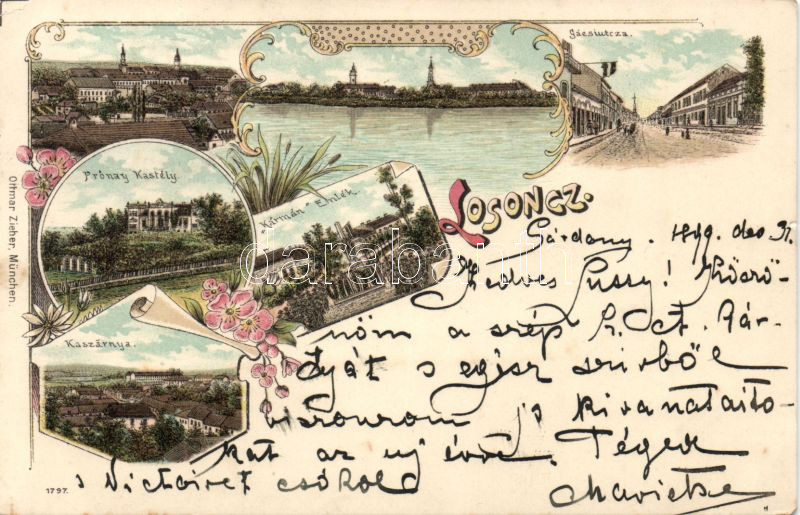 Gácsiutcza.
Prónay Kastély.
"Kármán" Emlék.
LOSONCZ.
Kaszárnya.
Ottmar Zieher, München.
1797.
darabanth.com
Gárdony. 1899. dec 31.
Kedves Pussy! Köszö-
nöm a szép kár-
tyát s egész szivből
viszonzom is kivanataito-
kat az uj évre. Téged
s Victoiret csókol
Mariette